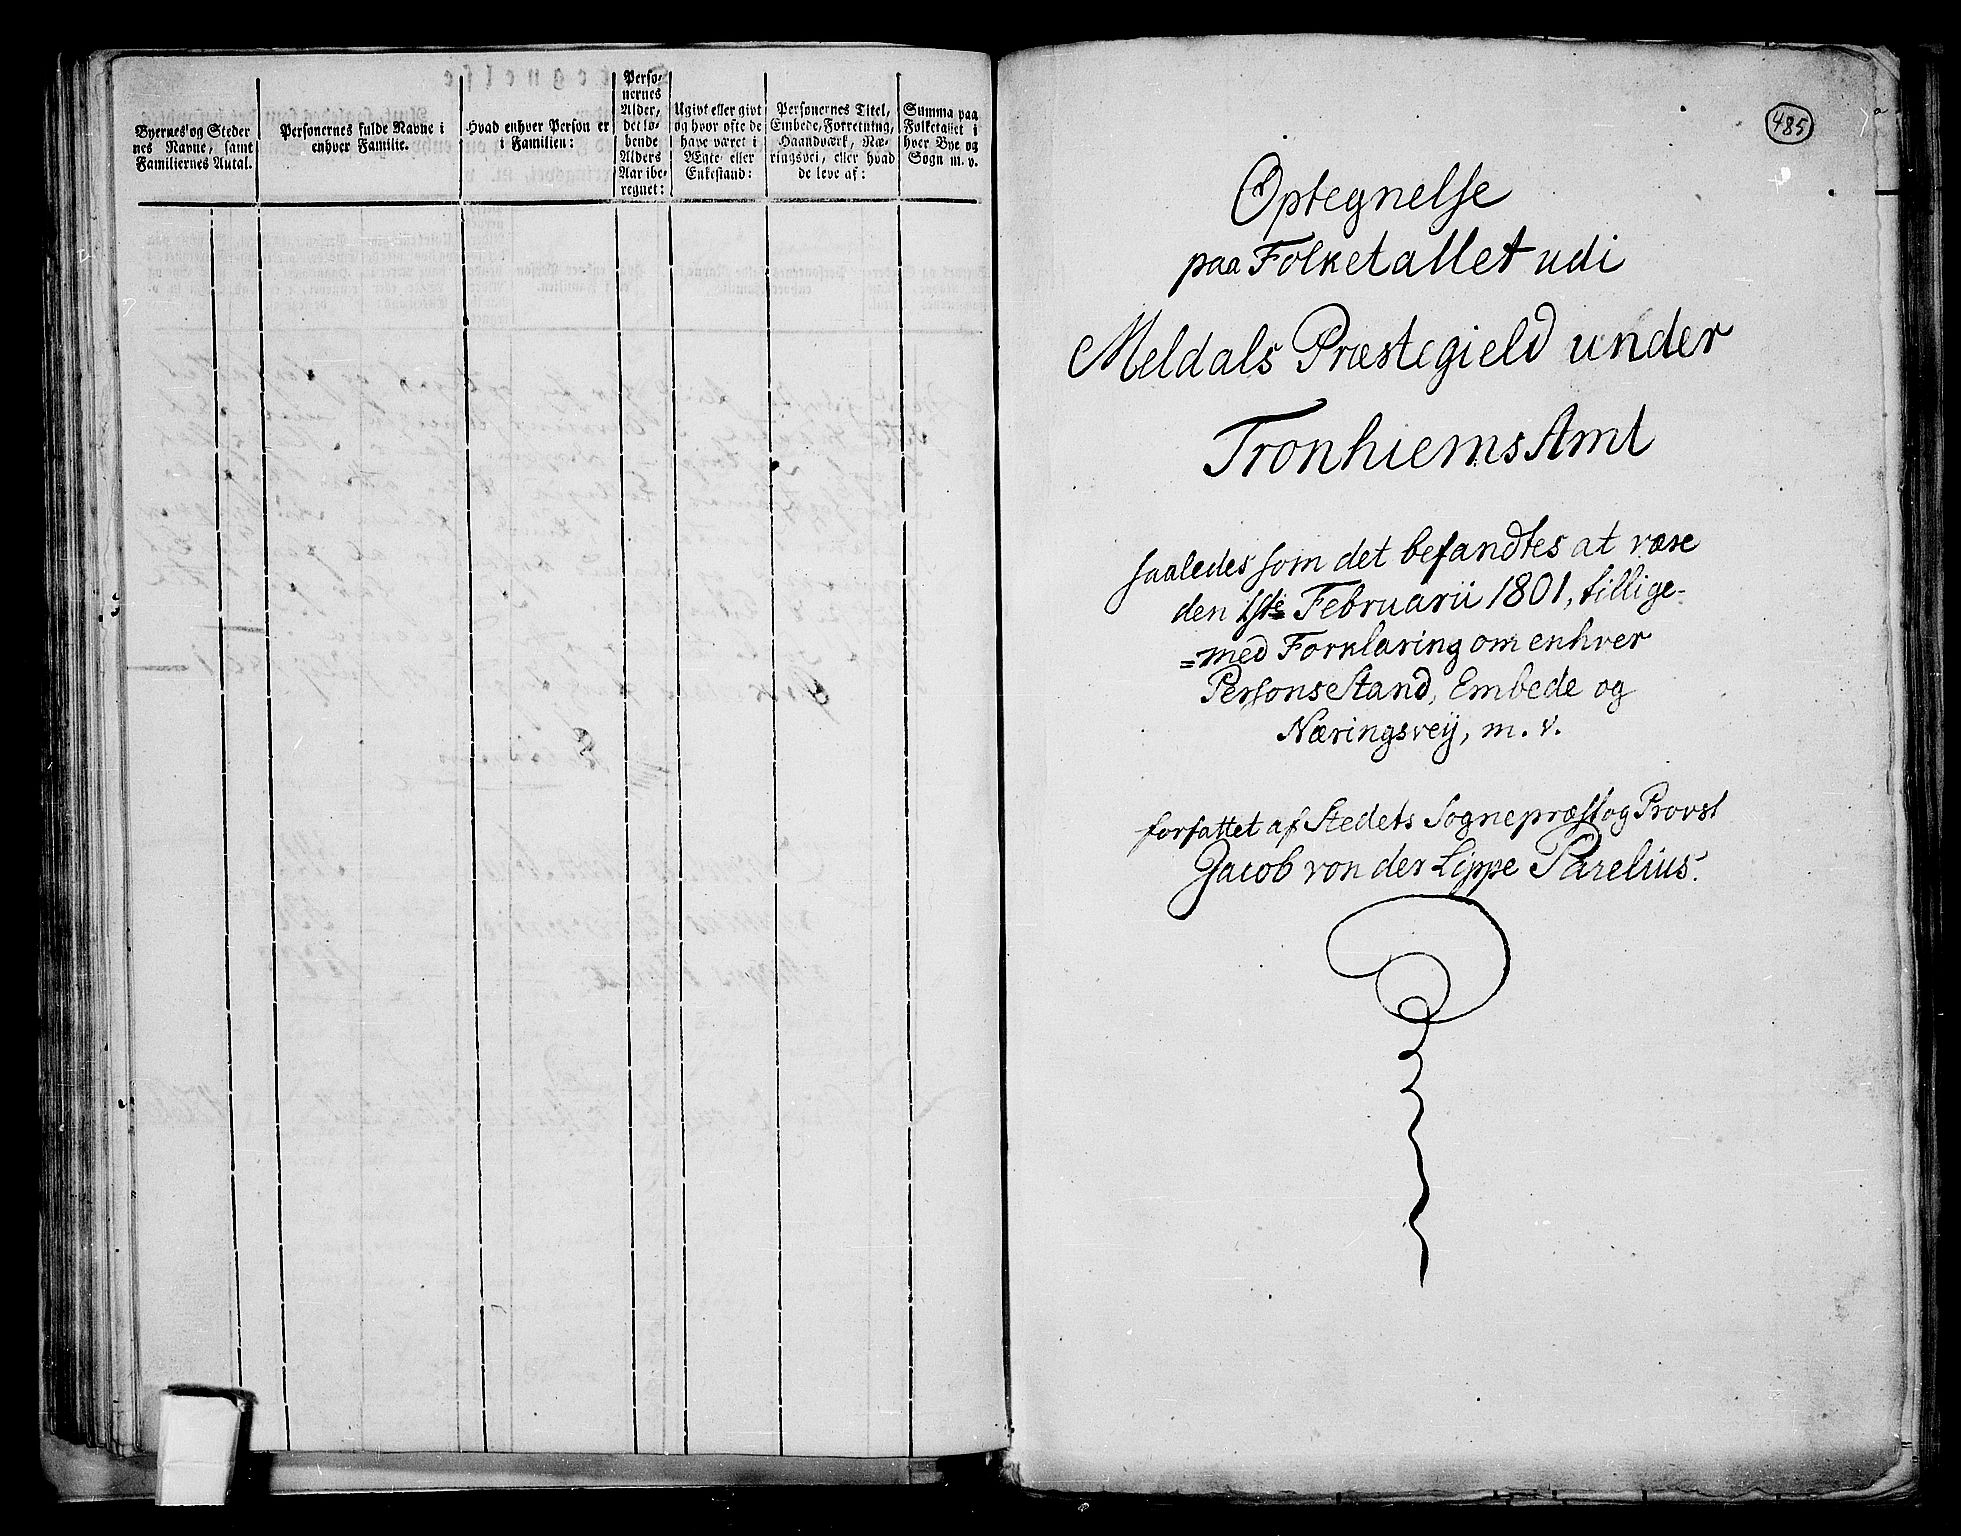 Byernes og Steder
nes Navne, samt
Familiernes Antal.
Personernes fulde Navne i
enhver Familie.
Hvad enhver Person er
i Familien:
Perso-
nernes
Alder,
det lø-
bende
Alders
Aar ibe-
regnet:
Ugivt eller givt
og hvor ofte de
have været i
Ægte- eller
Enkestand:
Personernes Titel,
Embede, Forretning,
Haandværk, Næ-
ringsvei, eller hvad
de leve af:
Summa paa
Folketallet i
hver Bye og
Sogn m. v.
485
Optegnelse
paa Folketallet udi
Meldals Præstegield under
Tronhiems Amt
saaledes som det befandtes at være
den 1ste Februarii 1801, tillige-
=med Forklaring om enhver
Persons Stand, Embede og
Næringsveij, m. v.
forfattet af Stedets Sognepræst og Provst
Jacob von der Lippe Parelius.